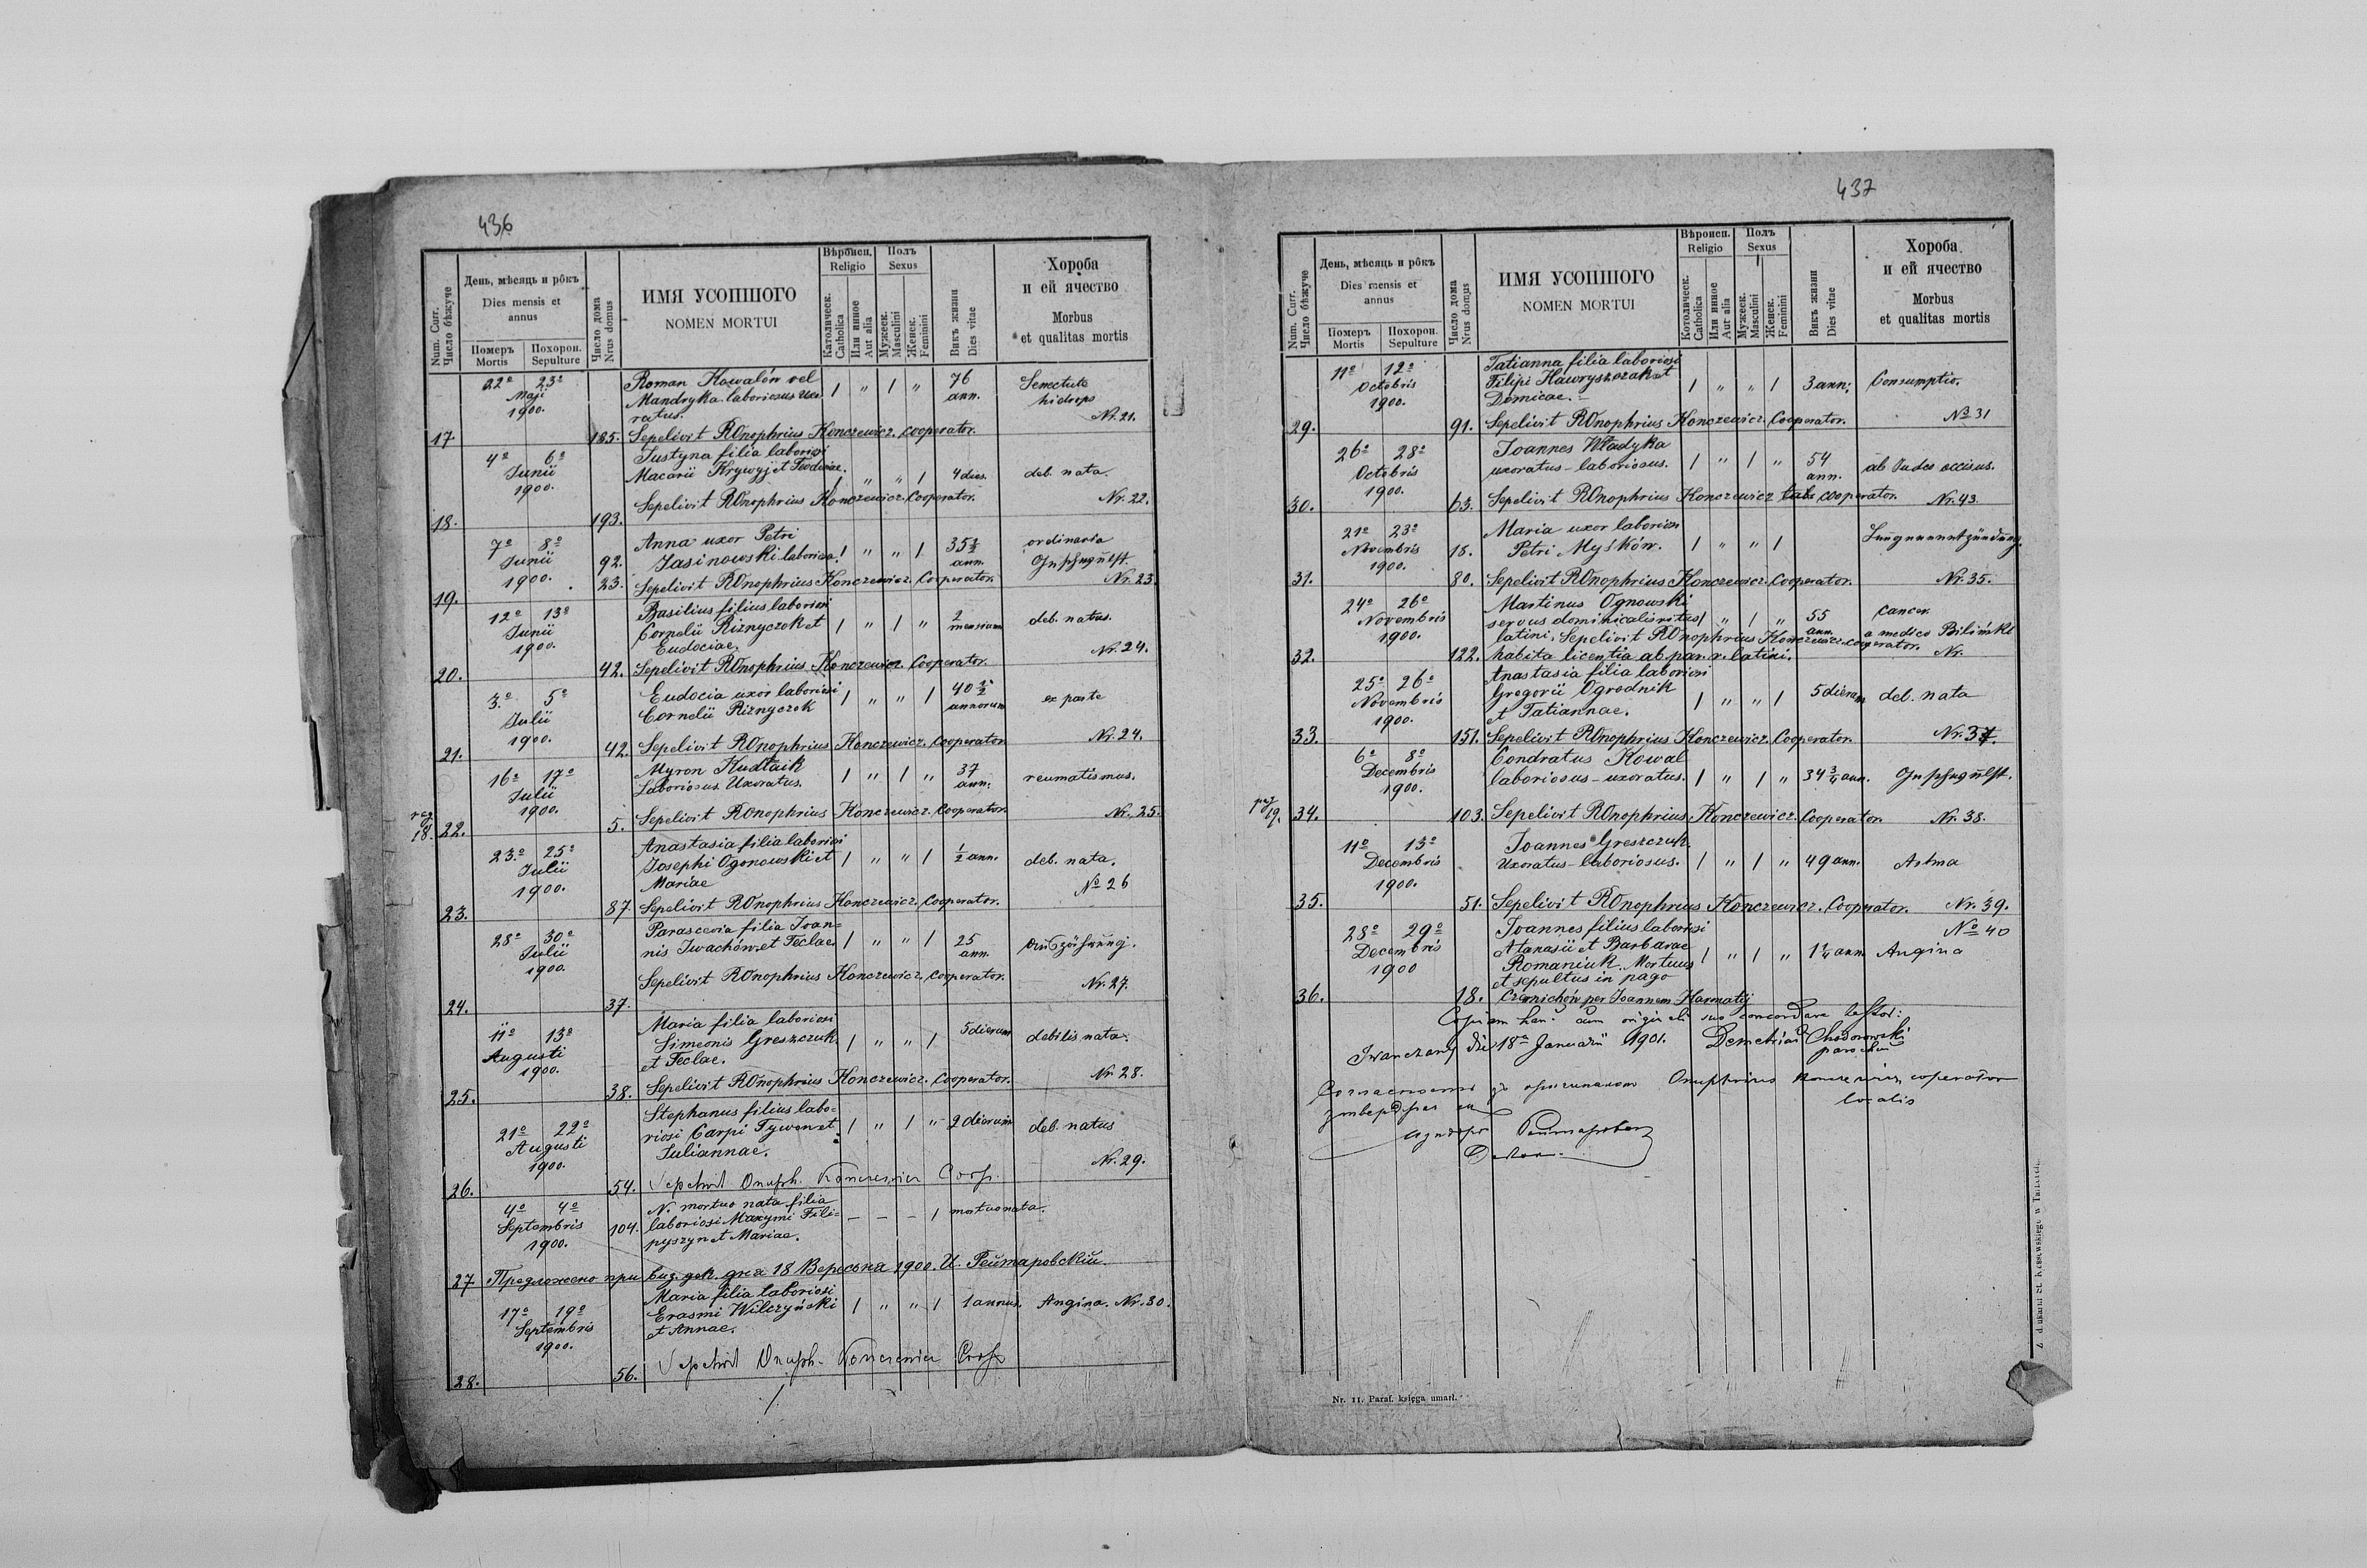 436
Num. Curr.
Число бѣжуче
День, мѣсяць и рôкъ
Dies mensis et
annus
Померъ
Mortis
Похорон.
Sepulture
Число дома
Nrus domus
ИМЯ УСОПШОГО
NOMEN MORTUI
Вѣроисп.
Religio
Католическ.
Catholica
Или инное
Aut alia
Полъ
Sexus
Мужеск.
Masculini
Женск.
Feminini
Викъ жизни
Dies vitae
Хороба
и ей ячество
Morbus
et qualitas mortis
22º 23º Roman Kowalów vel 76 Senectute
Maji Mandryka laboriosus uxo- / " / " ann. hidrops
1900. ratus. Nr. 21.
17. 185. Sepelivit ROnophrius Konczewicz. Cooperator.
4º 6º Justyna filia laboriosi
Junii Macarii Krywyj et Teodosiae. / " " / 4 dies. deb. nata.
1900.
Sepelivit ROnophrius Konczewicz. Cooperator. Nr. 22.
18. 193.
7º 8º Anna uxor Petri 35 ordinaria
Junii 92. Jasinowski laboriosa. / " " / ann.
1900. 23. Sepelivit ROnophrius Konczewicz. Cooperator. Nr. 23
19.
12º 13º Basilius filius laboriosi 2
Junii Cornelii Riznyczok et / " / " mensium deb. natus.
1900. Eudociae. Nr. 24.
20. 42. Sepelivit ROnophrius Konczewicz. Cooperator.
3.º 5º Eudocia uxor laboriosi / " " / 40 ½ ex parte
Julii Cornelii Riznyczok annorum
1900.
21. 42. Sepelivit ROnophrius Konczewicz. Cooperator Nr. 24.
16º 17º Myron Kudłaik / " / " 37 reumatismus.
Julii Laboriosus Uxoratus. ann.
1900.
18. 22. 5. Sepelivit ROnophrius Konczewicz. Cooperator. Nr. 25.
23.º 25º Anastasia filia laboriosi
Julii Josephi Ogonowski et / " " / ½ ann. deb. nata.
1900. Mariae Nº 26
23. 87. Sepelivit ROnophrius Konczewicz. Cooperator.
28º 30º Parascevia filia Joan=
Julii nis Iwachów et Teclae / " " / 25 Auszährung.
1900. ann.
Sepelivit ROnophrius Konczewicz. Cooperator. Nr. 27.
24. 37.
11º 13º Maria filia laboriosi 5 dierum
Augusti Simeonis Greszczuk / " " / debilis nata.
1900. et Teclae.
25. 38. Sepelivit ROnophrius Konczewicz. Cooperator. Nr. 28.
21º 22º Stephanus filius labo=
Augusti riosi Carpi Tywon et / " / " 2 dierum deb. natus
1900. Juliannae. Nr. 29.
26. 54. Sepelivit Onuph. Konczewicz Coop.
4º 4º N. mortuo nata filia
Septembris 104. laboriosi Maxymi Fili= - - - / mortuo nata.
1900. pyszyn et Mariae.
27 Предложено при виз. дек. дня 18 Вересня 1900. И. Реитаровскій.
17º 19º Maria filia laboriosi
Septembris Erasmi Wilczyński / " " / 1 annus. Angina. Nr. 30.
1900. et Annae.
28. 56. Sepelivit Onuph. Konczewicz Coop
437
Num. Curr.
Число бѣжуче
День, мѣсяць и рôкъ
Dies mensis et
annus
Померъ
Mortis
Похорон.
Sepulture
Число дома
Nrus domus
ИМЯ УСОПШОГО
NOMEN MORTUI
Вѣроисп.
Religio
Котолическ.
Catholica
Или инное
Aut alia
Полъ
Sexus
Мужеск.
Masculini
Женск.
Feminini
Викъ жизни
Dies vitae
Хороба
и ей ячество
Morbus
et qualitas mortis
11º 12º Tatianna filia laboriosi
Octobris Filipi Hawryszczak et / " " / 3 ann. Consumptio.
1900. Domicae.
29. 91. Sepelivit ROnophrius Konczewicz. Cooperator. Nº 31
26º 28º Joannes Władyka 54
Octobris uxoratus - laboriosus. / " / " ann. ab Judeo occisus.
1900.
30. 63. Sepelivit ROnophrius Konczewicz cooperator. Nr. 43
21º 23º Maria uxor laboriosi
Novembris 18. Petri Myśków. / " " / Lungenentzündung.
1900.
31. 80. Sepelivit ROnophrius Konczewicz. Cooperator. Nr. 35.
24º 26º Martinus Ognowski 55 cancer.
Novembris servus dominicalis ritus / " / " ann. a medico Biliński
1900. latini. Sepelivit ROnophrius Konczewicz. cooperator.
32. 122. habita licentia ab par. r. latini. Nr.
25º 26º Anastasia filia laboriosi
Novembris Gregorii Ogrodnik / " " / 5 dierum deb. nata
1900. et Tatiannae.
33. 151. Sepelivit ROnophrius Konczewicz. Cooperator. Nr. 37.
6º 8º Condratus Kowal
Decembris laboriosus - uxoratus. / " / " 34 ¾ ann.
1900.
pag 19. 34. 103. Sepelivit ROnophrius Konczewicz. Cooperator. Nr. 38.
11º 13º Joannes Greszczuk
Decembris Uxoratus - laboriosus. / " / " 49 ann. Astma
1900.
35. 51. Sepelivit ROnophrius Konczewicz. Cooperator. Nr. 39.
28º 29º Joannes filius laboriosi Nº 40
Decembris Atanasii et Barbarae / " / " 1¼ ann Angina
1900 Romaniuk. Mortuus
et sepultus in pago
36. 18. Czernichów per Joannem Harmatij
Copiam hanc cum originali suo concordare testor:
Iwanczany die 18º Januarii 1901. Demetrius Chodorowski
parochus
Onuphrius Konczewicz cooperator
localis
Nr. 11. Paraf. księga umarł.